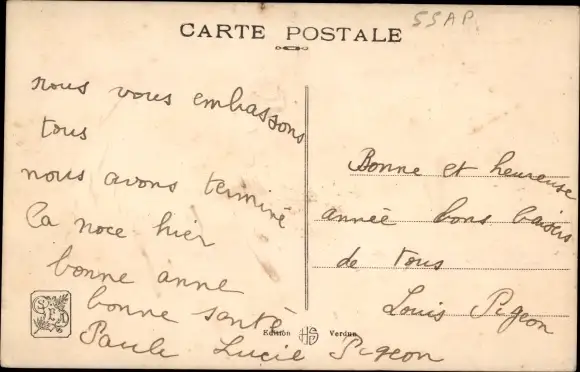 55AP
CARTE POSTALE
nous vous embassons
tous
nous avons terminé
la noce hier
bonne anne
bonne santé
Paule Lucie Pigeon
Bonne et heureuse
année bons baisers
de tous
Louis Pigeon
SED
Edition HS Verdun